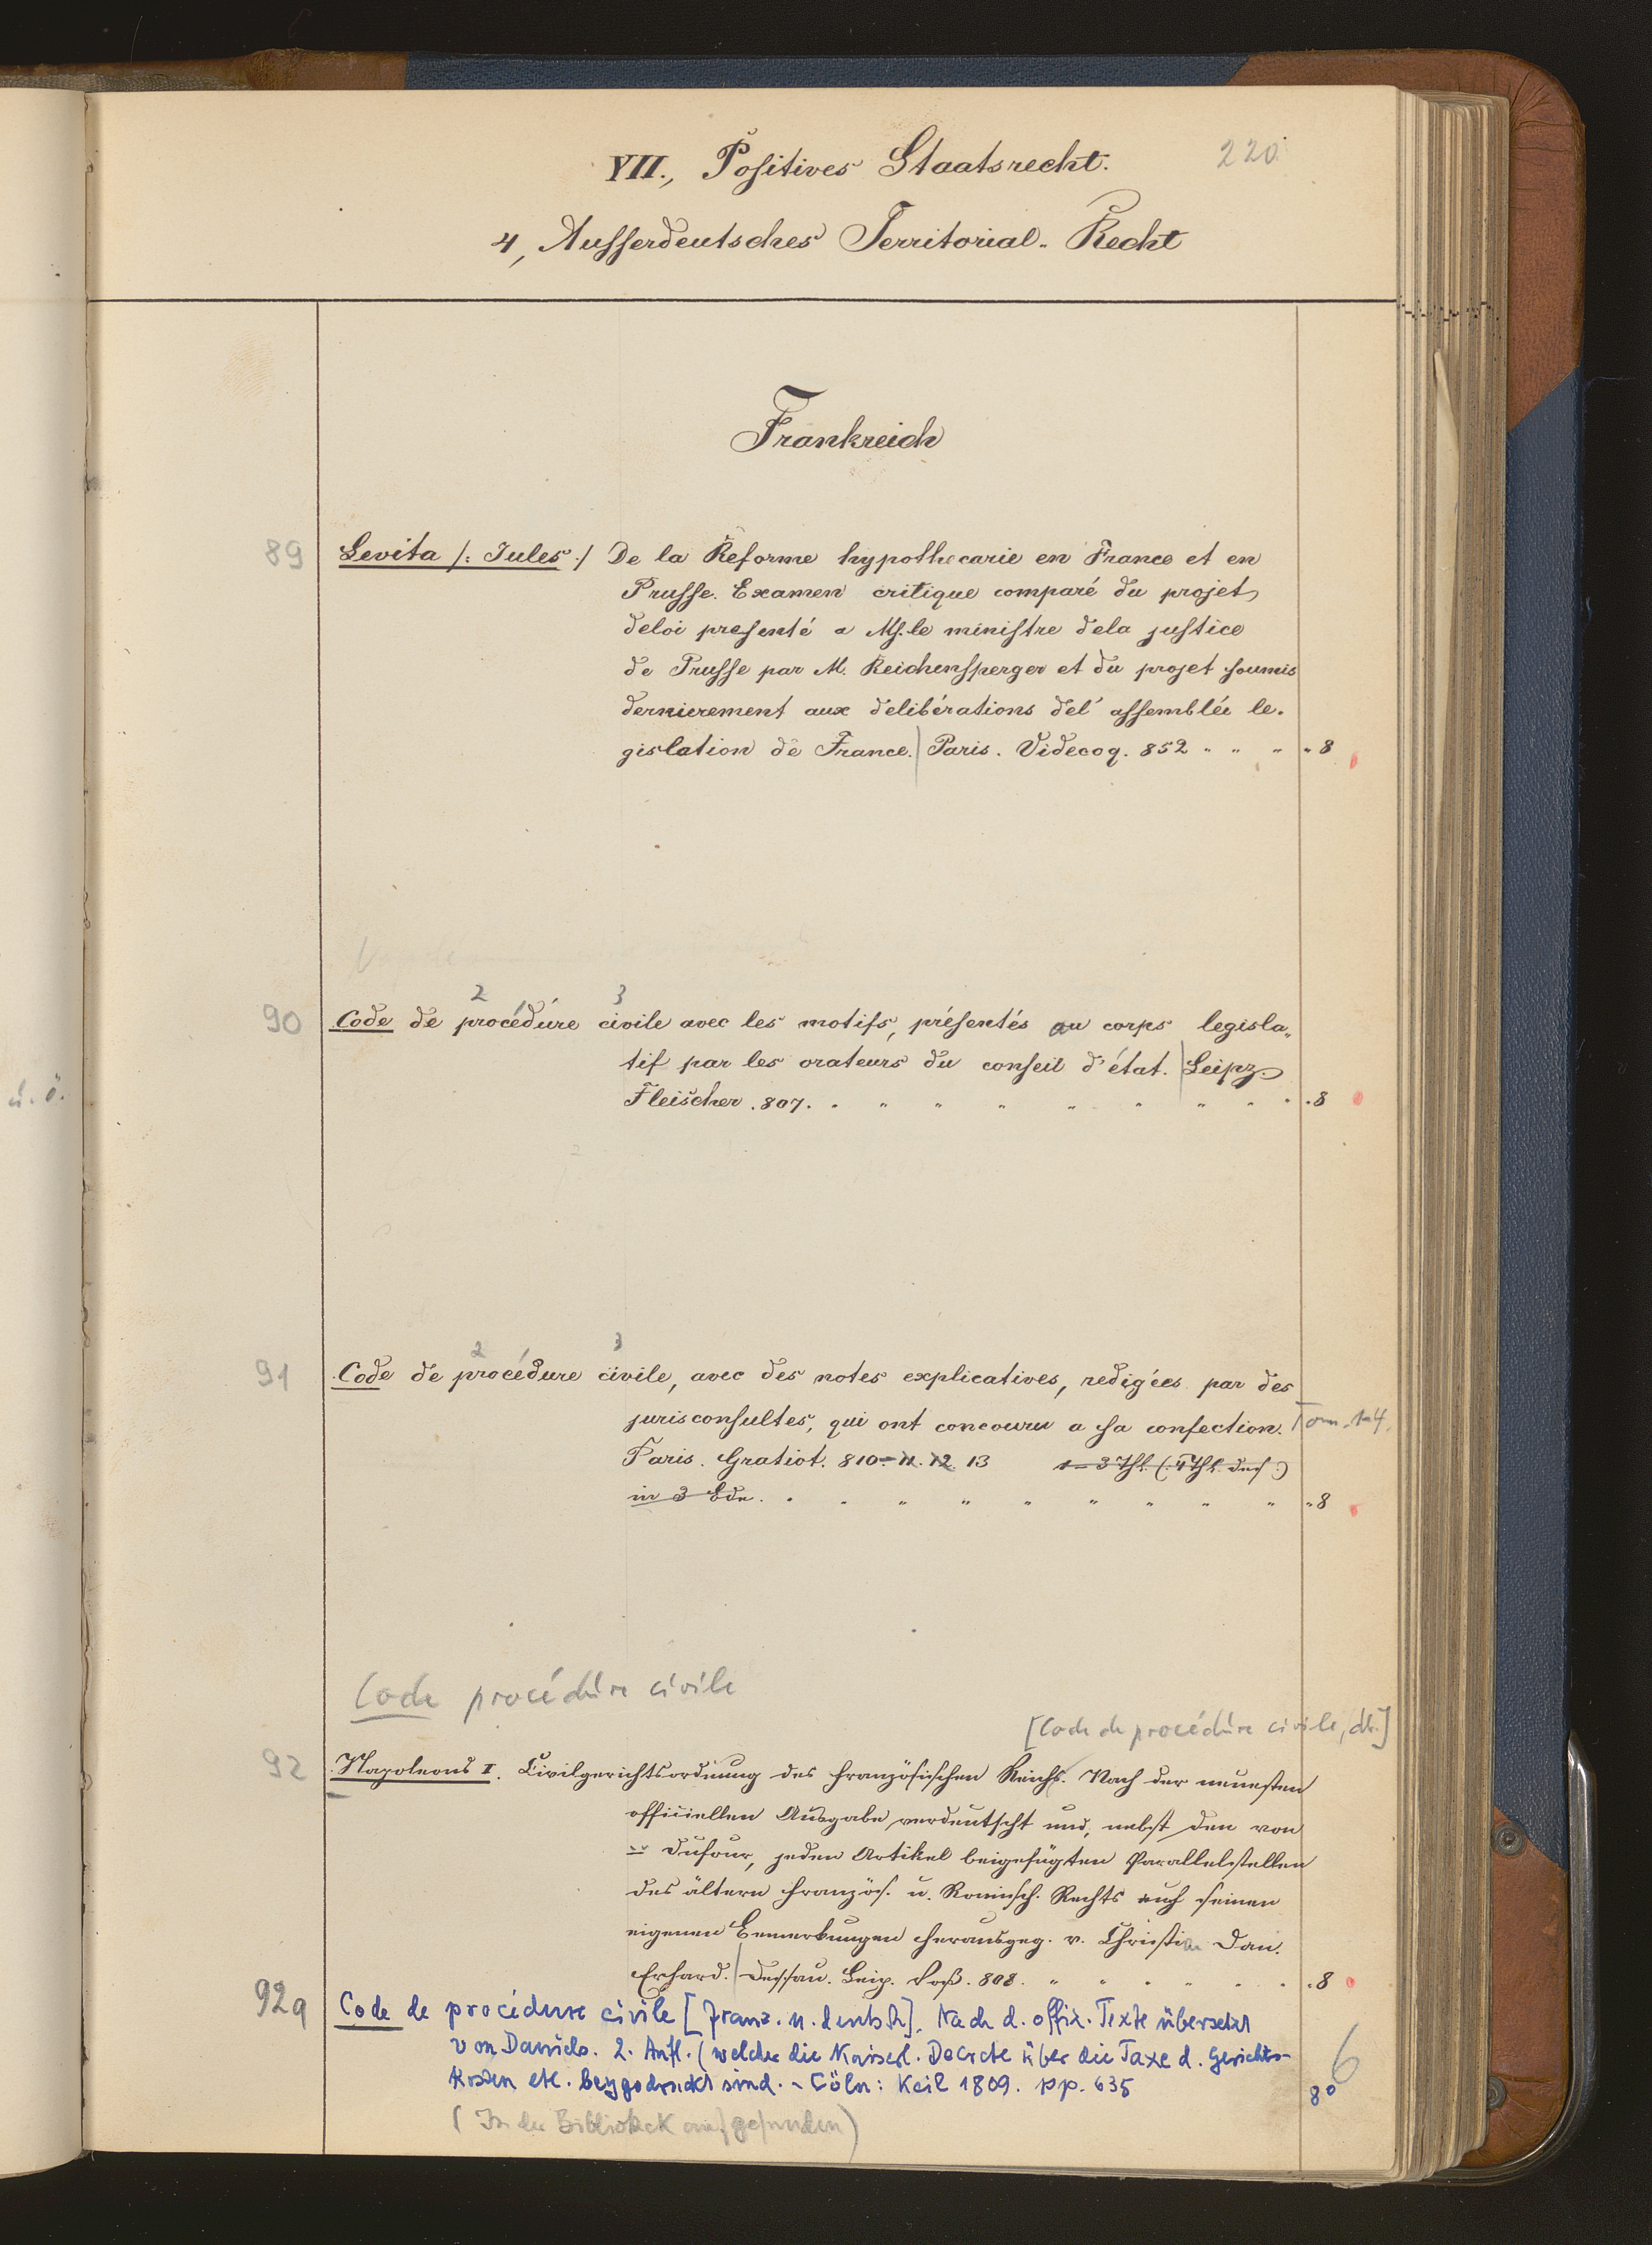 220
VII., Positives Staatsrecht.
4, Ausserdeutsches Territorial-Recht
Frankreich
89 Levita /: Jules :/ De la Reforme hypothecarie en France et en
Prusse. Examen critique comparé du projet
deloi presenté a Ms. le ministre dela justice
de Prusse par M. Reichensperger et du projet soumis
dernierement aux délibérations del' assemblée le-
gislation de France. | Paris. Videcoq. 852 " " " " 8
2 3
90 Code de procédure civile avec les motifs, présentés au corps legisla-
tif par les orateurs du conseil d'état. | Leipz.
Fleischer. 807. " " " " " " " " . 8
2 3
91 Code de procédure civile, avec des notes explicatives, redigées par des
jurisconsultes, qui ont concouru a sa confection. Tom. 1-4.
Paris. Gratiot. 810-11. 12. 13 1-3 Thl. (: 4 Thl. des :)
in 3 Bde. " " " " " " " " " 8
Code procédure civile
[Code de procédure civile, dt.]
92 Napoleons I. Civilgerichtsordnung des französischen Reichs. Nach der neuesten
officiellen Ausgabe verdeutscht und, nebst den von
Dufour, jeden Artikel beigefügten Parallelstellen
des ältern französ. u. Römisch. Rechts auch seinen
eigenen Bemerkungen herausgeg. v. Christian Dan.
Erhard. | Dessau. Leip. Voß. 808. " " " " " . 8
92a Code de procédure civile [franz. u. deutsch]. Nach d. offiz. Texte übersetzt
von Daniels. 2. Aufl. (welcher die Kaiserl. Decrete über die Taxe d. Gerichts-
kosten etc. beygedruckt sind. - Cöln: Keil 1809. pp. 635 8° 6
(In der Bibliothek aufgefunden)
ü. ö.